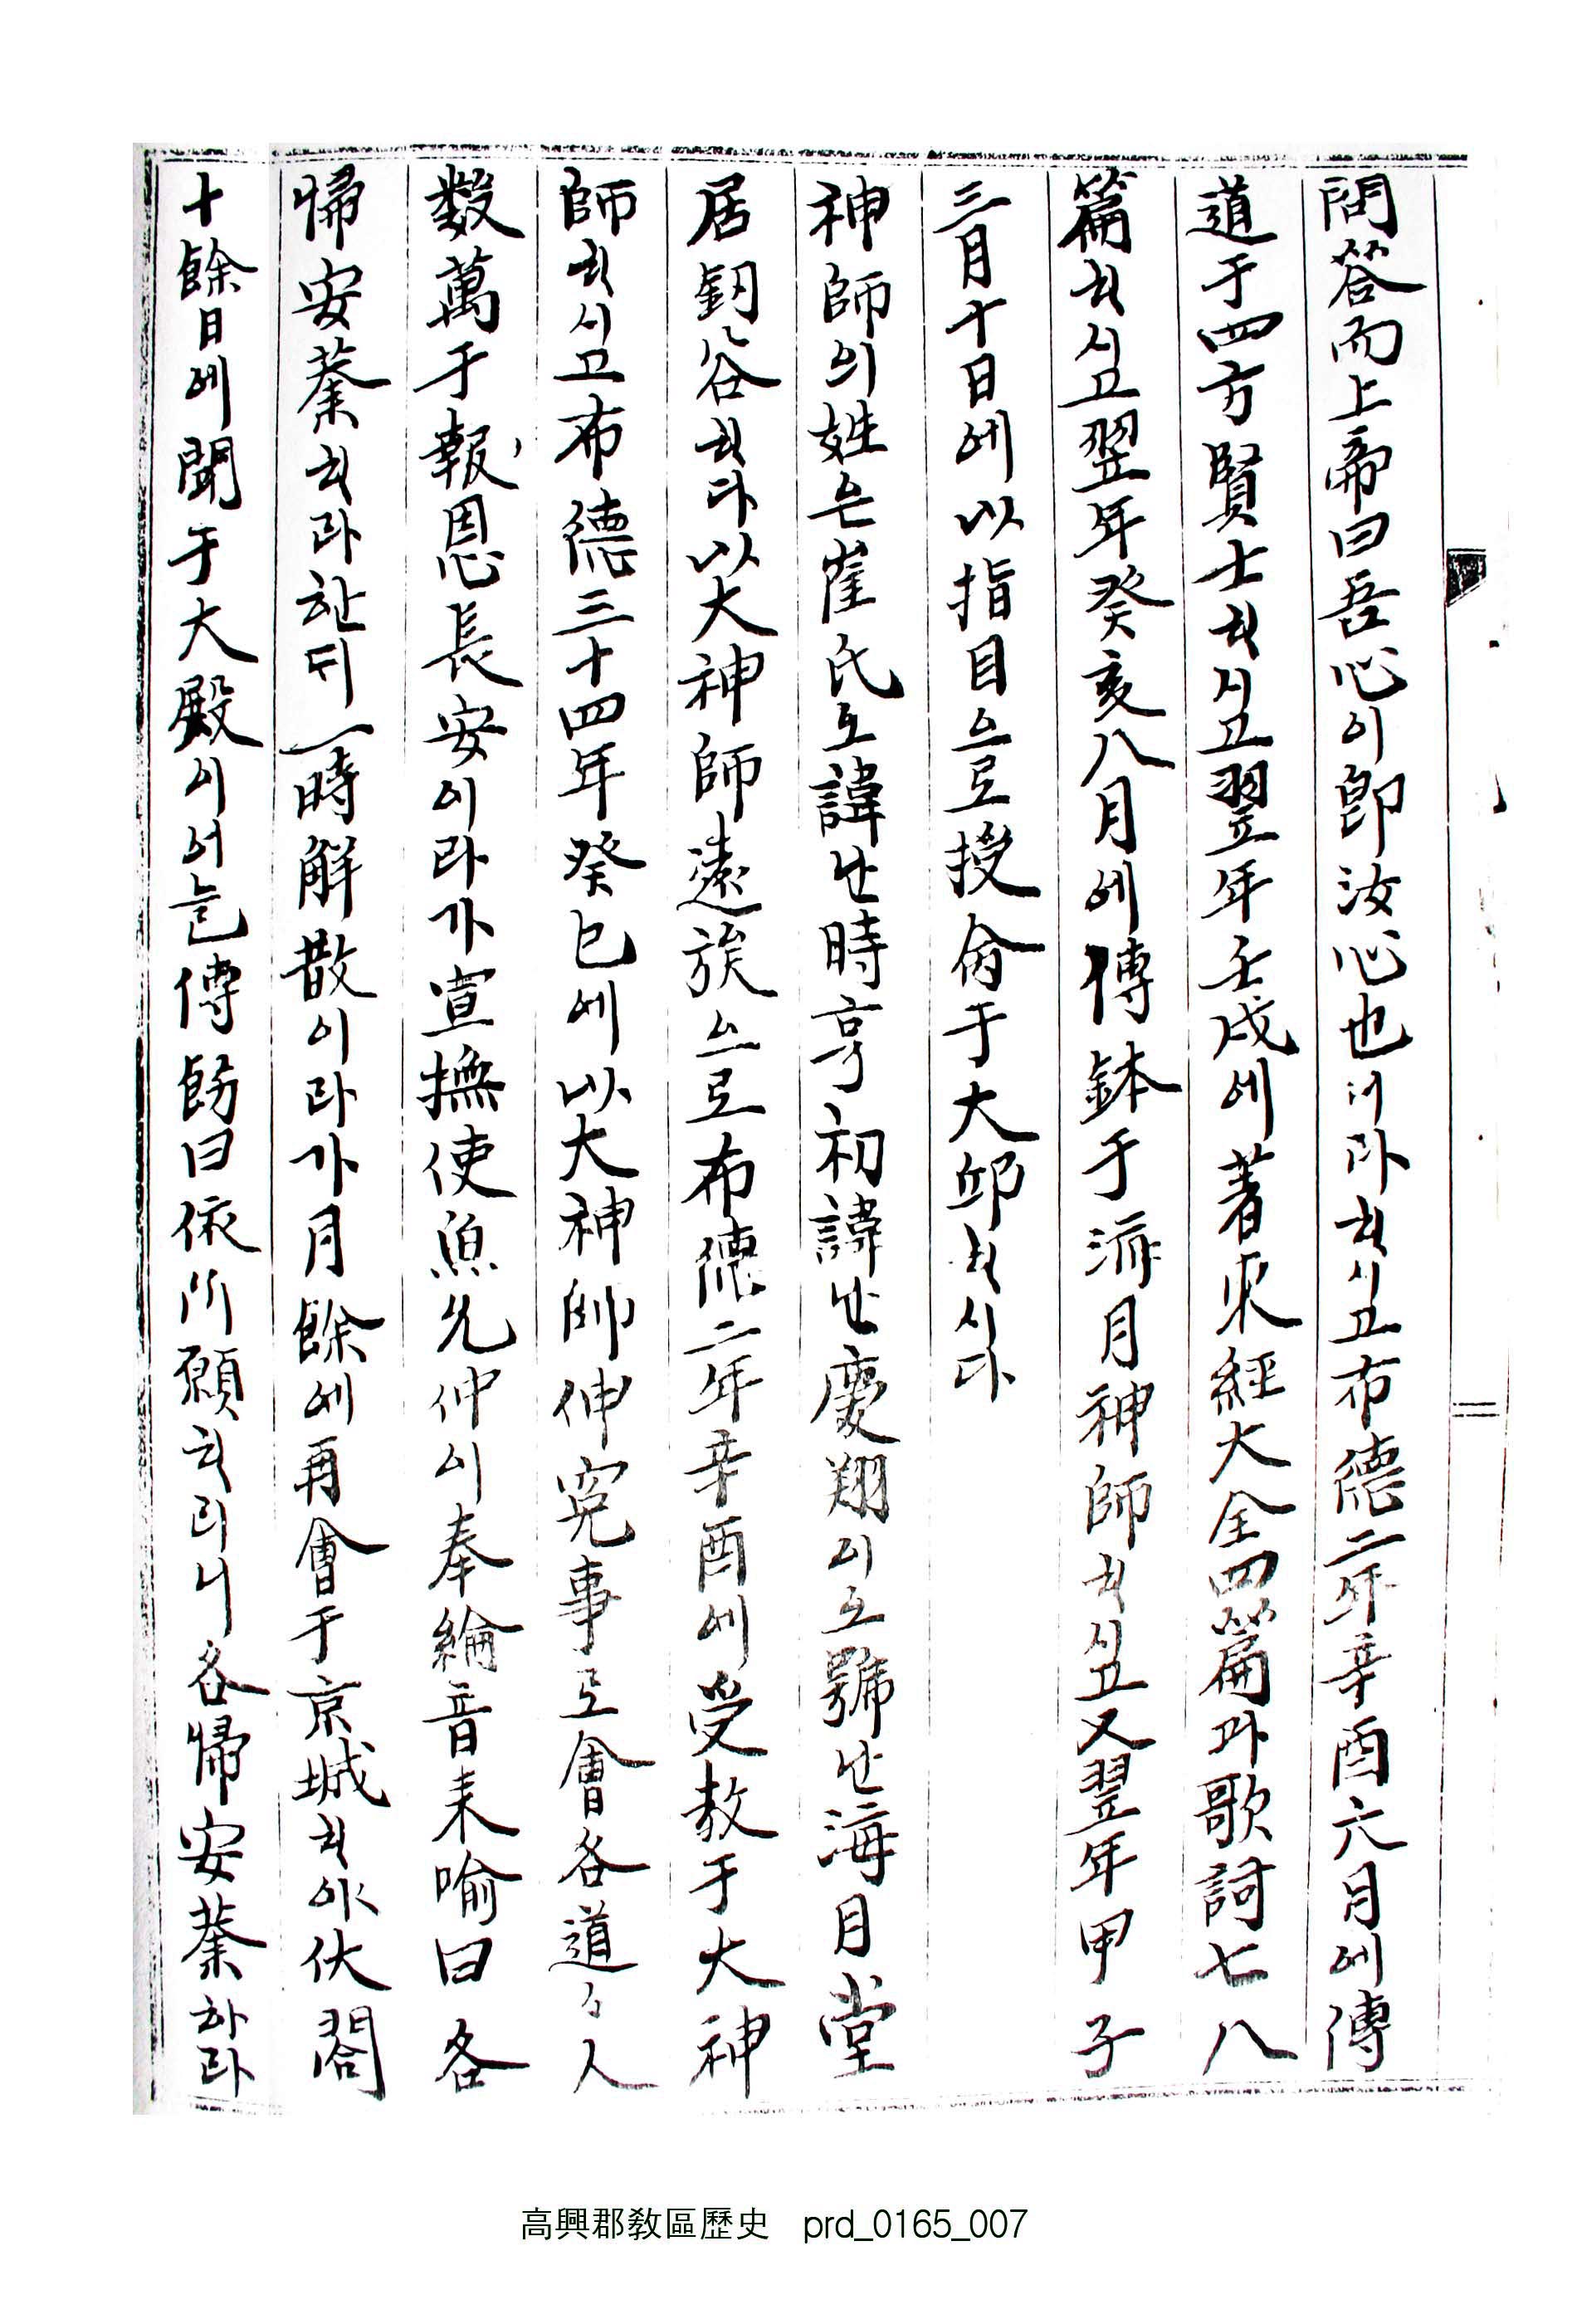 問答而上帝曰吾心이卽汝心也ㅣ라ᄒᆞ시고布德二年辛酉六月에傳
道于四方賢士ᄒᆞ시고翌年壬戌에著東經大全四篇과歌詞七八
篇ᄒᆞ시고翌年癸亥八月에傳鉢于海月神師ᄒᆞ시고又翌年甲子
三月十日에以指目으로授命于大邱ᄒᆞ시다
神師의姓은崔氏오諱ᄂᆞᆫ時亨初諱ᄂᆞᆫ慶翔이오號ᄂᆞᆫ海月堂
居釰谷ᄒᆞ다以大神師遠族으로布德二年辛酉에受敎于大神
師ᄒᆞ시고布德三十四年癸巳에以大神師伸寃事로會各道々人
數萬于報恩長安이라가宣撫使魚允仲이奉綸音来喻曰各
帰安業ᄒᆞ라ᄒᆞᆫᄃᆡ一時解散이라가月餘에再會于京城ᄒᆞ야伏閤
十餘日에聞于大殿이어늘傳飭曰依所願ᄒᆞ리니各帰安業하라
高興郡敎區歷史 prd_0165_007